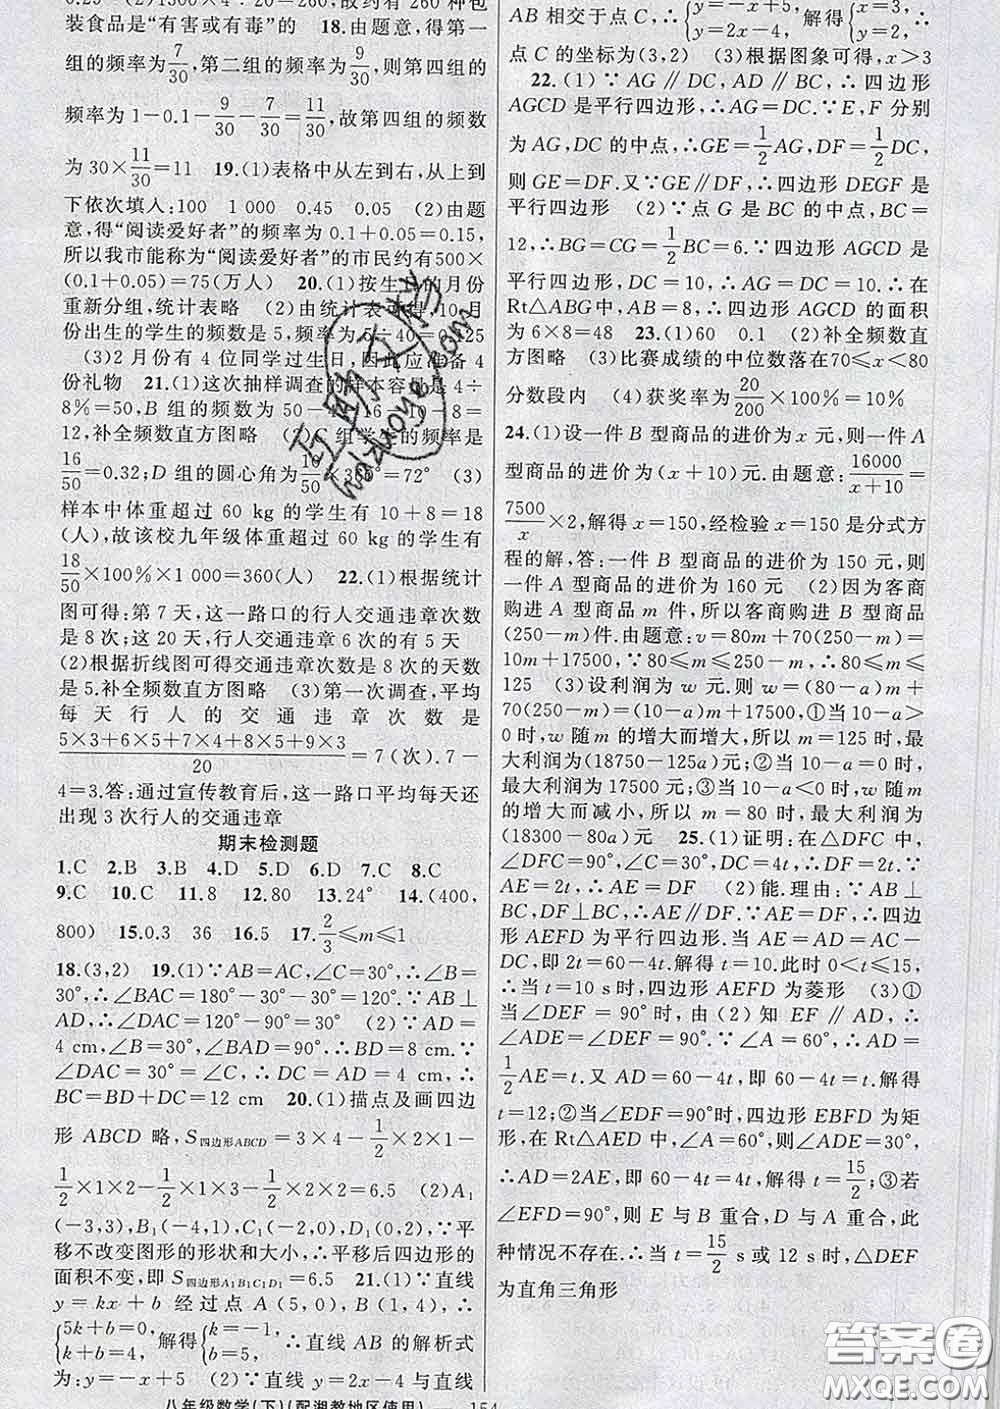 4÷20=0.2 (2)1300×4÷20=260,故约有260种包
装食品是"有害或有毒"的 18.由题意,得第一
组的频率为7/30,第二组的频率为9/30,则第四组的
频率为1-0.1-9/30-7/30=11/30,故第四组的频数
为30×11/30=11 19.(1)表格中从左到右,从上到
下依次填入:100 1 000 0.45 0.05 (2)由题
意,得"阅读爱好者"的频率为0.1+0.05=0.15,
所以我市能称为"阅读爱好者"的市民约有500×
(0.1+0.05)=75(万人) 20.(1)按生日的月份
重新分组,统计表略 (2)由统计表可得,10月
份出生的学生的频数是5,频率为5÷40=0.125
(3)2月份有4位同学过生日,因此应准备4
份礼物 21.(1)这次抽样调查的样本容量是4÷
8%=50,B组的频数为50-4-16-10-8=
12,补全频数直方图略 (2)C组学生的频率是
16/50=0.32;D组的圆心角为10/50×360°=72° (3)
样本中体重超过60 kg的学生有10+8=18
(人),故该校九年级体重超过60 kg的学生有
18/50×100%×1 000=360(人) 22.(1)根据统计
图可得:第7天,这一路口的行人交通违章次数
是8次;这20天,行人交通违章6次的有5天
(2)根据折线图可得交通违章次数是8次的天数
是5.补全频数直方图略 (3)第一次调查,平均
每天行人的交通违章次数是
(5×3+6×5+7×4+8×5+9×3)/20=7(次).7-
4=3.答:通过宣传教育后,这一路口平均每天还
出现3次行人的交通违章
期末检测题
1.C 2.B 3.B 4.D 5.D 6.D 7.C 8.C
9.C 10.C 11.8 12.80 13.24° 14.(400,
800) 15.0.3 36 16.5 17.2/3≤m≤1
18.(3,2) 19.(1)∵AB=AC,∠C=30°,∴∠B=
30°,∴∠BAC=180°-30°-30°=120°.∵AB⊥
AD,∴∠DAC=120°-90°=30° (2)∵AD=
4 cm,∠B=30°,∠BAD=90°,∴BD=8 cm.∵
∠DAC=30°=∠C,∴DC=AD=4 cm,∴
BC=BD+DC=12 cm 20.(1)描点及画四边
形ABCD略,S四边形ABCD=3×4-1/2×2×1-
1/2×1×2-1/2×1×3-1/2×2×2=6.5 (2)A₁
(-3,3),B₁(-4,1),C₁(-2,0),D₁(0,2),∵平
移不改变图形的形状和大小,∴平移后四边形的
面积不变,即S四边形A₁B₁C₁D₁=6.5 21.(1)∵直线
y=kx+b经过点A(5,0),B(1,4),∴
{5k+b=0, k+b=4, 解得{k=-1, b=5, ∴直线AB的解析式
为:y=-x+5 (2)∵直线y=2x-4与直线
八年级数学(下)(配湘教地区使用) — 154
AB相交于点C,∴{y=-x+5, y=2x-4, 解得{x=3, y=2, ∴
点C的坐标为(3,2) (3)根据图象可得,x>3
22.(1)∵AG∥DC,AD∥BC,∴四边形
AGCD是平行四边形,∴AG=DC.∵E,F分别
为AG,DC的中点,∴GE=1/2AG,DF=1/2DC,
则GE=DF.又∵GE∥DF,∴四边形DEGF是
平行四边形 (2)∵点G是BC的中点,BC=
12,∴BG=CG=1/2BC=6.∵四边形AGCD是
平行四边形,DC=10,∴AG=DC=10.∴在
Rt△ABG中,AB=8,∴四边形AGCD的面积
为6×8=48 23.(1)60 0.1 (2)补全频数直
方图略 (3)比赛成绩的中位数落在70≤x<80
分数段内 (4)获奖率为20/200×100%=10%
24.(1)设一件B型商品的进价为x元,则一件A
型商品的进价为(x+10)元.由题意:16000/(x+10)=
7500/x×2,解得x=150,经检验x=150是分式方
程的解,答:一件B型商品的进价为150元,一
件A型商品的进价为160元 (2)因为客商
购进A型商品m件,所以客商购进B型商品
(250-m)件.由题意:v=80m+70(250-m)=
10m+17500,∵80≤m≤250-m,∴80≤m≤
125 (3)设利润为w元.则w=(80-a)m+
70(250-m)=(10-a)m+17500,①当10-a>
0时,w随m的增大而增大,所以m=125时,最
大利润为(18750-125a)元;②当10-a=0时,
最大利润为17500元;③当10-a<0时,w随m
的增大而减小,所以m=80时,最大利润为
(18300-80a)元 25.(1)证明:在△DFC中,
∠DFC=90°,∠C=30°,DC=4t,∴DF=2t.又∵
AE=2t,∴AE=DF (2)能.理由:∵AB⊥
BC,DF⊥BC,∴AE∥DF.又∵AE=DF,∴四边
形AEFD为平行四边形.当AD=AE=AC-
DC,即2t=60-4t.解得t=10.此时0<t≤15,
∴当t=10 s时,四边形AEFD为菱形 (3)①
当∠DEF=90°时,由(2)知EF∥AD,∴
∠ADE=∠DEF=90°.∵∠A=60°,∴AD=
1/2AE=t.又AD=60-4t,即60-4t=t.解得
t=12;②当∠EDF=90°时,四边形EBFD为矩
形,在Rt△AED中,∠A=60°,则∠ADE=30°,
∴AD=2AE,即60-4t=4t,解得t=15/2;③若
∠EFD=90°,则E与B重合,D与A重合,此
种情况不存在.∴当t=15/2 s或12 s时,△DEF
为直角三角形
答案圈
MXQE.COM